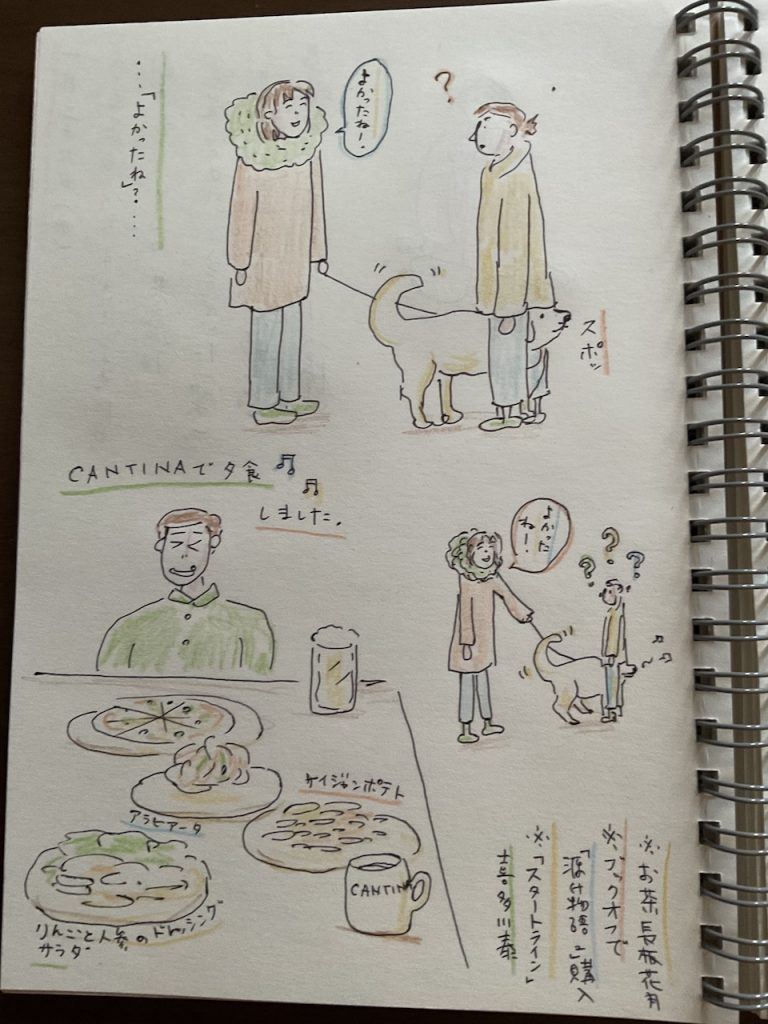 …「よかったね」?….
よかったねー!
?
スポッ
CANTINAで夕食
しました。
よかった
ねー!
? ? ?
ケイジャンポテト
アラビアータ
CANTINA
りんごと人参のドレッシング
サラダ
※お茶、長板、花月
※ブックオフで
「源氏物語」購入
※「スタートライン」
喜多川泰